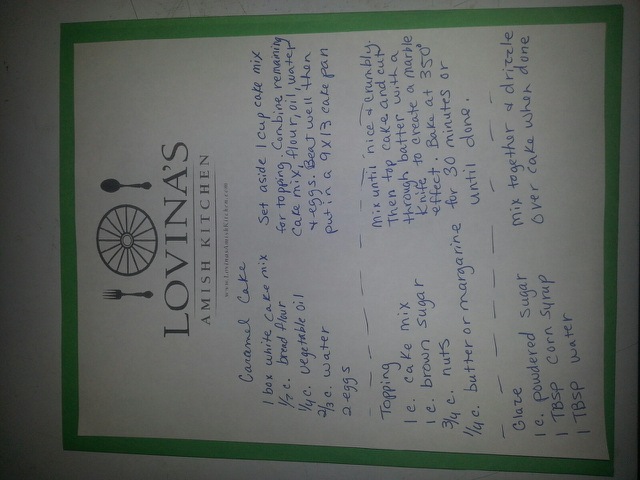 LOVINA'S
AMISH KITCHEN
www.lovinasamishkitchen.com
Caramel Cake
1 box white cake mix
1/2 c. bread flour
1/4 c. vegetable oil
2/3 c. water
2 eggs
Set aside 1 cup cake mix
for topping. Combine remaining
cake mix, flour, oil, water,
+ eggs. Beat well then
put in a 9x13 cake pan
Topping
1 c. cake mix
1 c. brown sugar
3/4 c. nuts
1/4 c. butter or margarine
Mix until nice & crumbly.
Then top cake and cut
through batter with a
knife to create a marble
effect. Bake at 350°
for 30 minutes or
until done.
Glaze
1 c. powdered sugar
1 TBSP corn syrup
1 TBSP water
mix together & drizzle
over cake when done